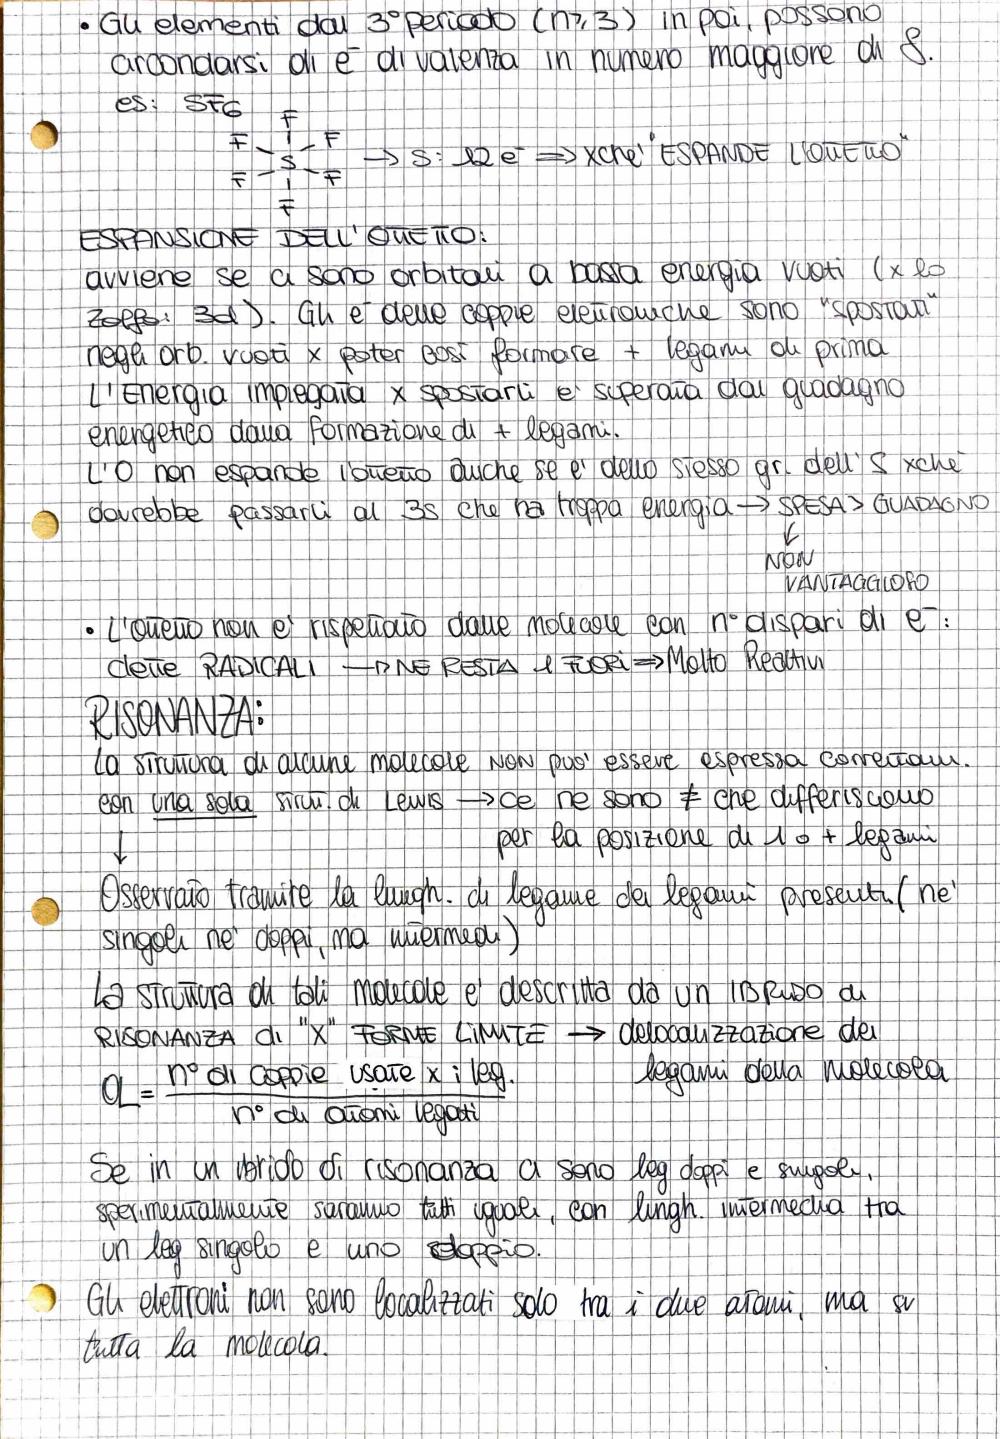 • Gli elementi dal 3° periodo (n≥3) in poi, possono
circondarsi di e⁻ di valenza in numero maggiore di 8.
es: SF6
F
F F
S → S: 12 e⁻ ⇒ xchè "ESPANDE L'OTTETTO"
F F
F
ESPANSIONE DELL'OTTETTO:
avviene se ci sono orbitali a bassa energia vuoti (x lo
zolfo: 3d). Gli e⁻ delle coppie elettroniche sono "spostati"
negli orb. vuoti x poter così formare + legami di prima
L'Energia impiegata x spostarli è superata dal guadagno
energetico dalla formazione di + legami.
L'O non espande l'ottetto anche se è dello stesso gr. dell'S xchè
dovrebbe passarli al 3s che ha troppa energia → SPESA > GUADAGNO
↓
NON
VANTAGGIOSO
• L'ottetto non è rispettato dalle molecole con n° dispari di e⁻:
dette RADICALI → NE RESTA 1 FUORI ⇒ Molto Reattivi
RISONANZA:
La struttura di alcune molecole NON può essere espressa correttam.
con una sola strutt. di Lewis → ce ne sono ≠ che differiscono
per la posizione di 1 o + legami
↓
Osservato tramite la lungh. di legame dei legami presenti (nè
singoli nè doppi, ma intermedi)
La struttura di tali molecole è descritta da un IBRIDO di
RISONANZA di "X" FORME LIMITE → delocalizzazione dei
legami della molecola
OL = n° di coppie usate x i leg.
n° di atomi legati
Se in un ibrido di risonanza ci sono leg doppi e singoli,
sperimentalmente saranno tutti uguali, con lungh. intermedia tra
un leg singolo e uno doppio.
Gli elettroni non sono localizzati solo tra i due atomi, ma su
tutta la molecola.